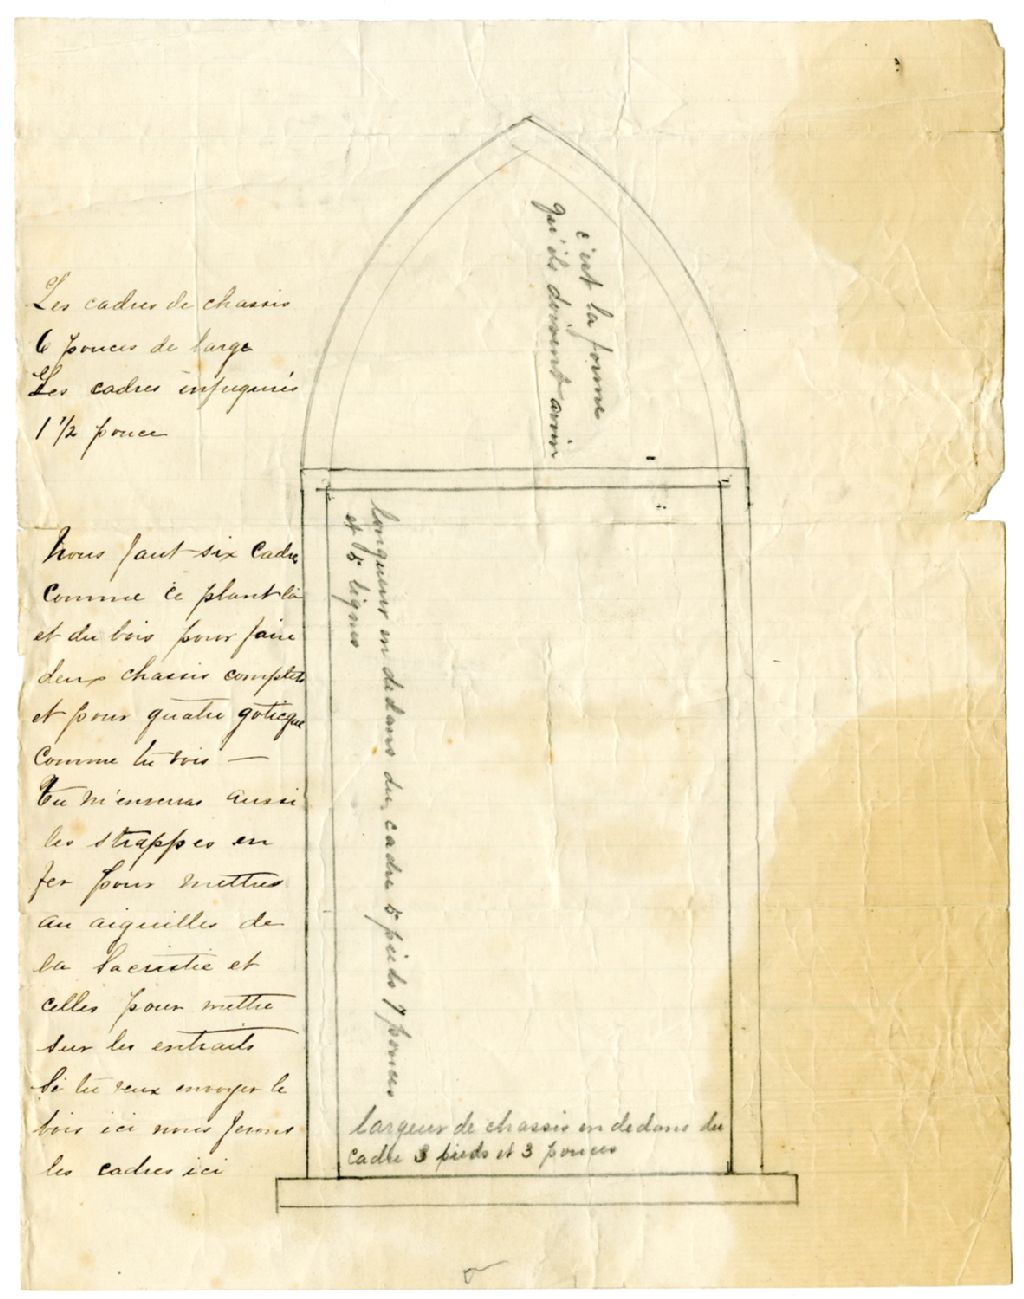 Les cadres de chassis
6 pouces de large
Les cadres
1 1/2 pouce
Nous faut six cadre
comme ce plant là
et du bois pour faire
deux chassis complets
et pour quatre goticque
comme tu vois —
Tu m'enverras aussi
les strappes en
fer pour mettres
au aiguilles de
la Sacristie et
celles pour mettre
sur les entraits
Si tu veux envoyer le
bois ici nous ferons
les cadres ici
c'est la forme
qu'ils doivent avoir
longueur en dedans du cadre 5 pieds 7 pouces
et 5 lignes
largeur de chassis en dedans du
cadre 3 pieds et 3 pouces